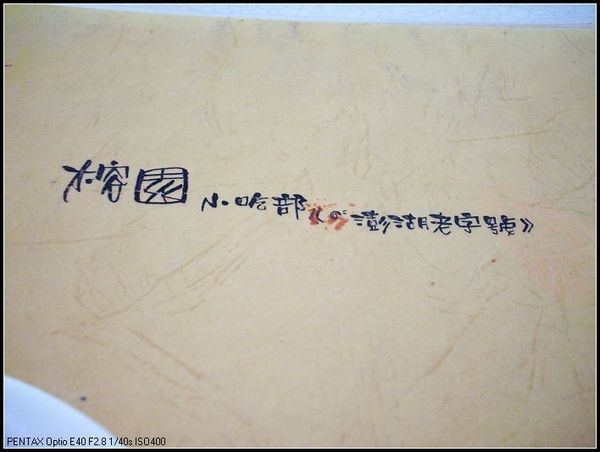 榕園 小吃部《澎湖老字號》
PENTAX Optio E40 F2.8 1/40s ISO400